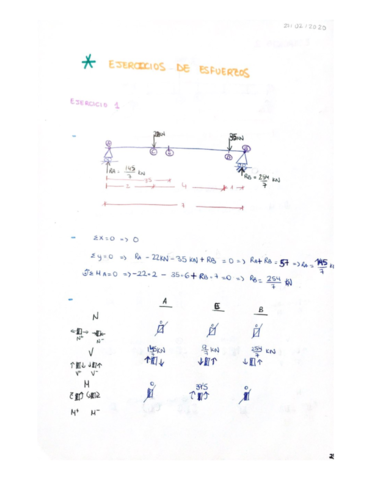 21/02/2020
* EJERCICIOS DE ESFUERZOS
EJERCICIO 1
22KN 35KN
A C E D B
RA = 145/7 KN RB = 254/7 KN
3,5
2 4 1
7
- ΣX=0 => 0
ΣY=0 => RA - 22KN - 35 KN + RB = 0 => RA + RB = 57 => RA = 145/7 K
ΣMA=0 => -22·2 - 35·6 + RB·7 = 0 => RB = 254/7 KN
A E B
N
N⁺ N⁻
V 145/7 KN 9/7 KN 254/7 KN
V⁻ V⁺
M 0 0
M⁺ M⁻